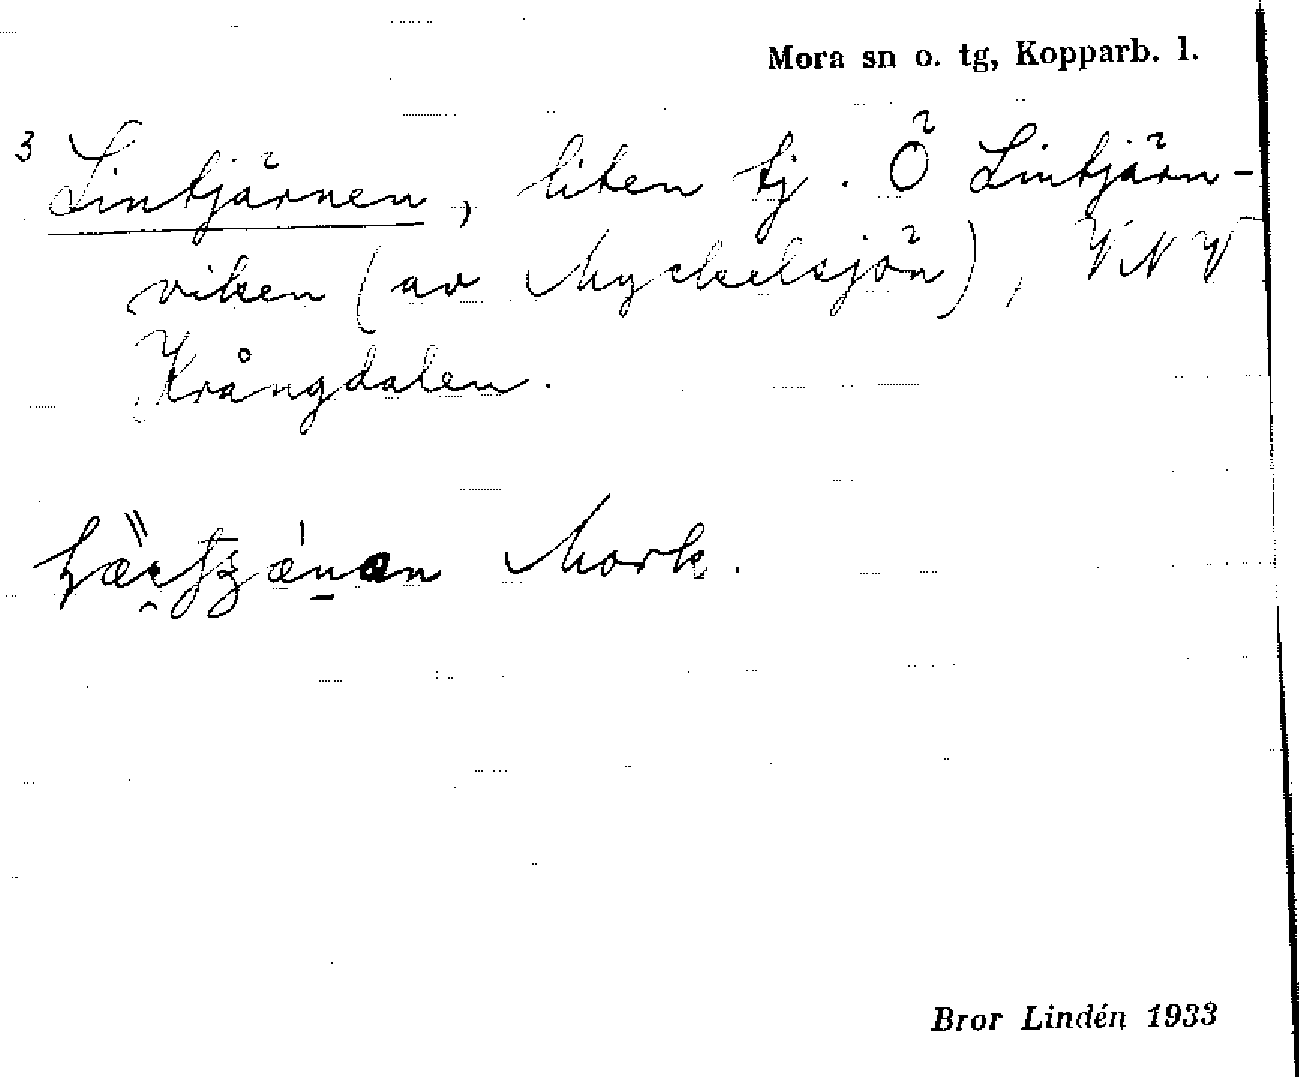 Mora sn o. tg, Kopparb. l.
3 Lintjärnen, liten tj. Ö Lintjärn-
viken (av Myckelsjön), VNV
Krångdalen.
Mork.
Bror Lindén 1933